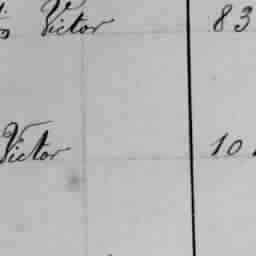 Victor 83
Victor 10